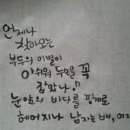 언제나
찾아오는
부두의 이별이
아쉬워 두 손을 꼭
잡았나
눈앞의 바다를 핑계로
헤어지나 남자는 배, 여자